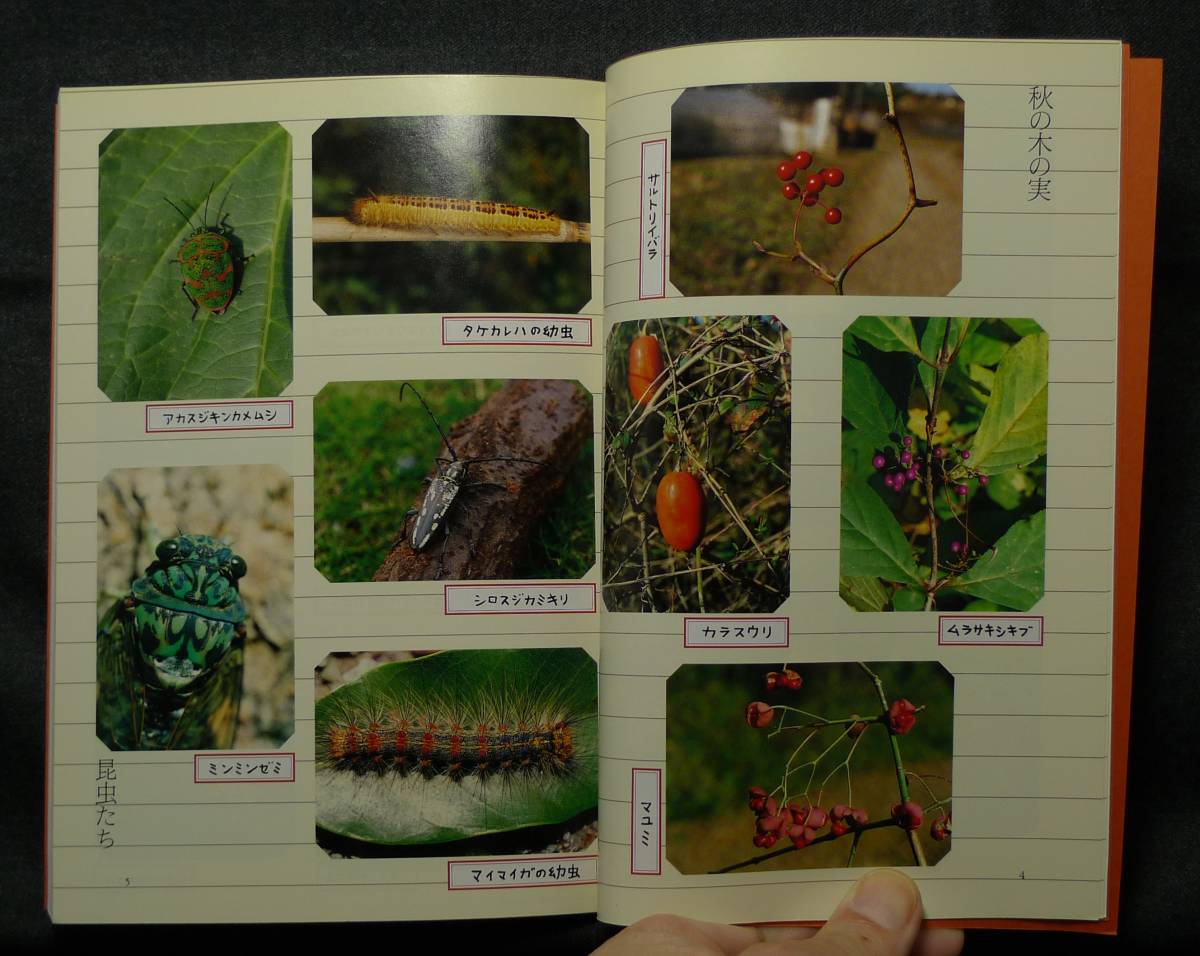 秋の木の実
サルトリイバラ
ムラサキシキブ
カラスウリ
マユミ
4
タケカレハの幼虫
アカスジキンカメムシ
シロスジカミキリ
ミンミンゼミ
マイマイガの幼虫
昆虫たち
5